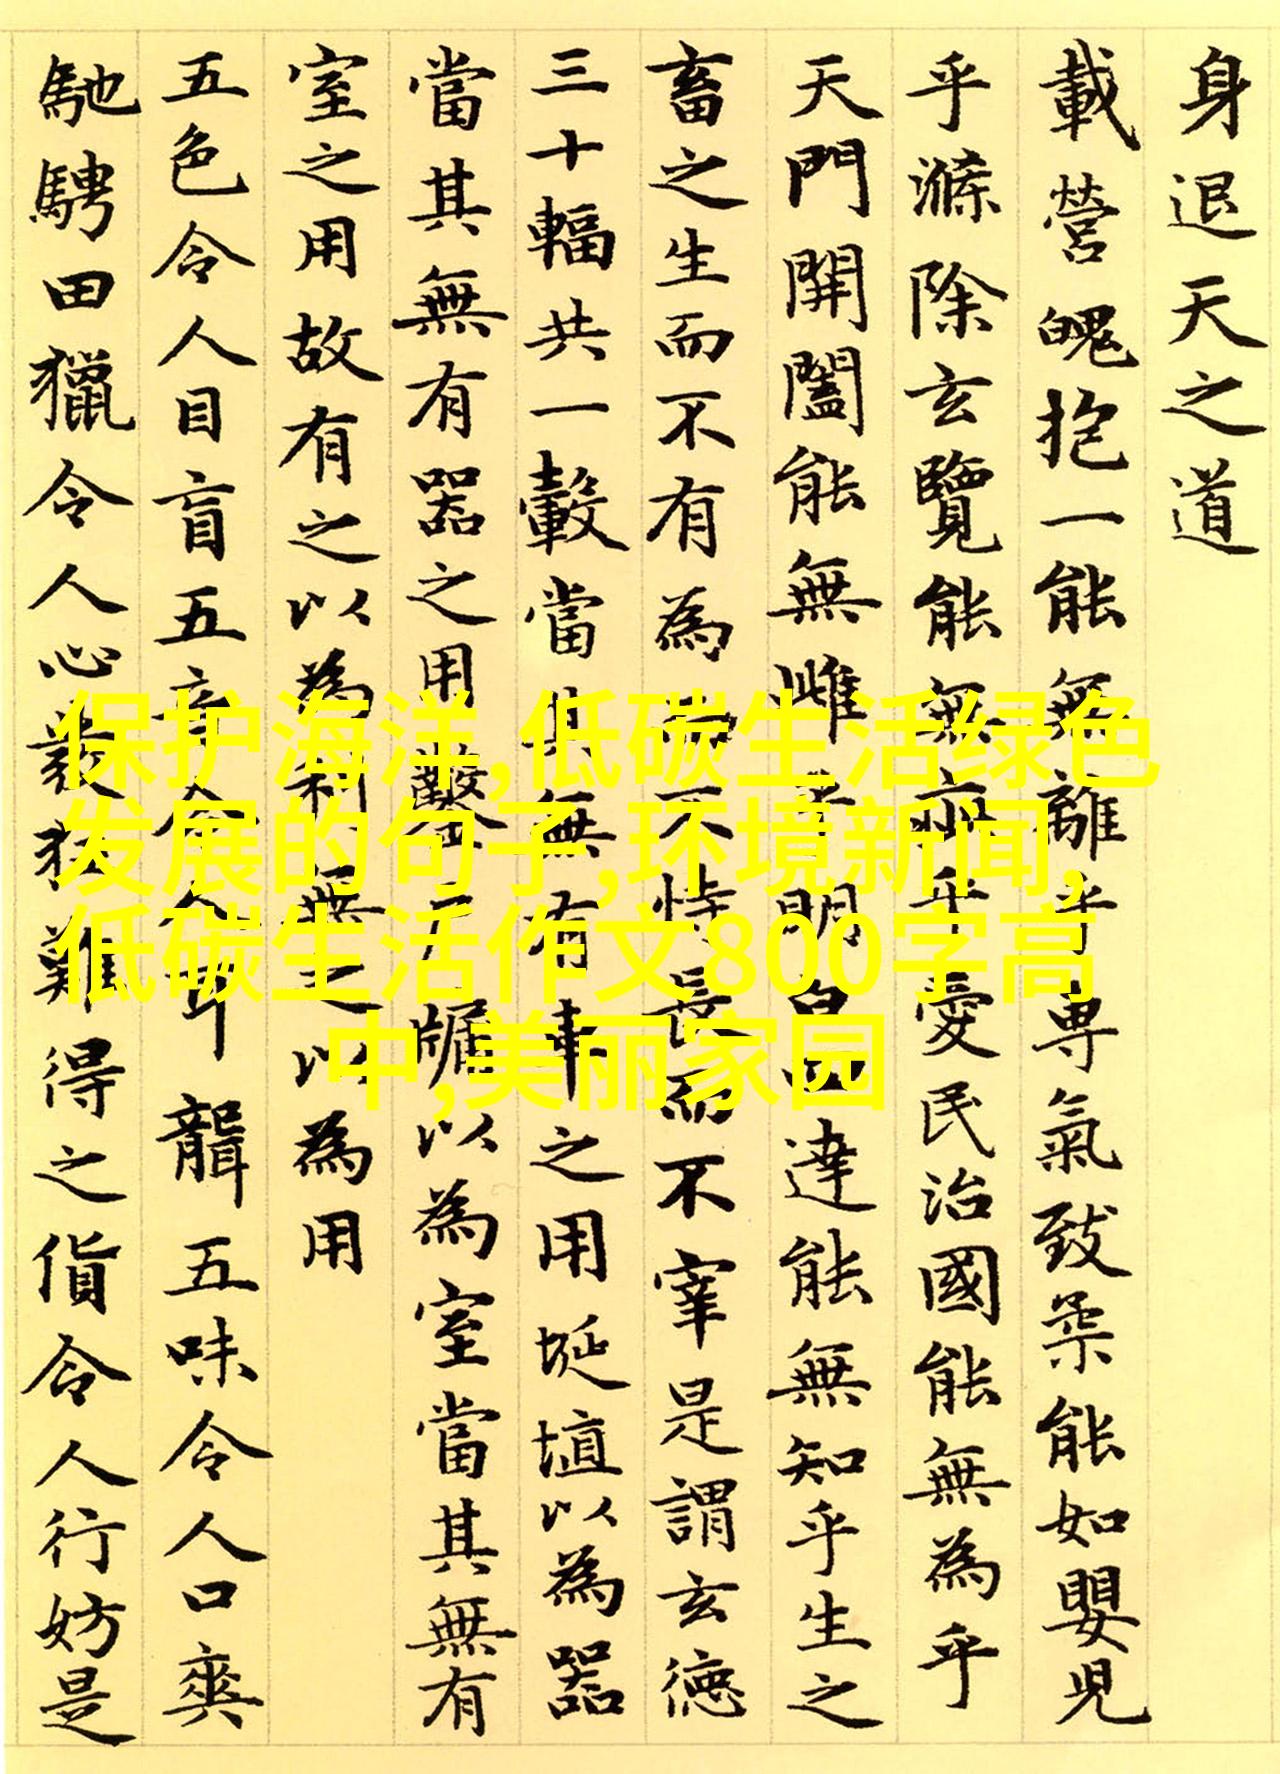 身退天之道
載營魄抱一能無離乎専氣致柔能如嬰兒
乎滌除玄覽能無疵乎愛民治國能無為乎
天門開闔能無雌乎明白四達能無知乎生之
畜之生而不有為而不恃長而不宰是謂玄德
三十輻共一轂當其無有車之用埏埴以為器
當其無有器之用鑿戶牖以為室當其無有
室之用故有之以為利無之以為用
五色令人目盲五音令人耳聾五味令人口爽
馳騁田獵令人心發狂難得之貨令人行妨是
保护海洋,低碳生活绿色
发展的句子,环境新闻,
低碳生活作文800字高
中,美丽家园